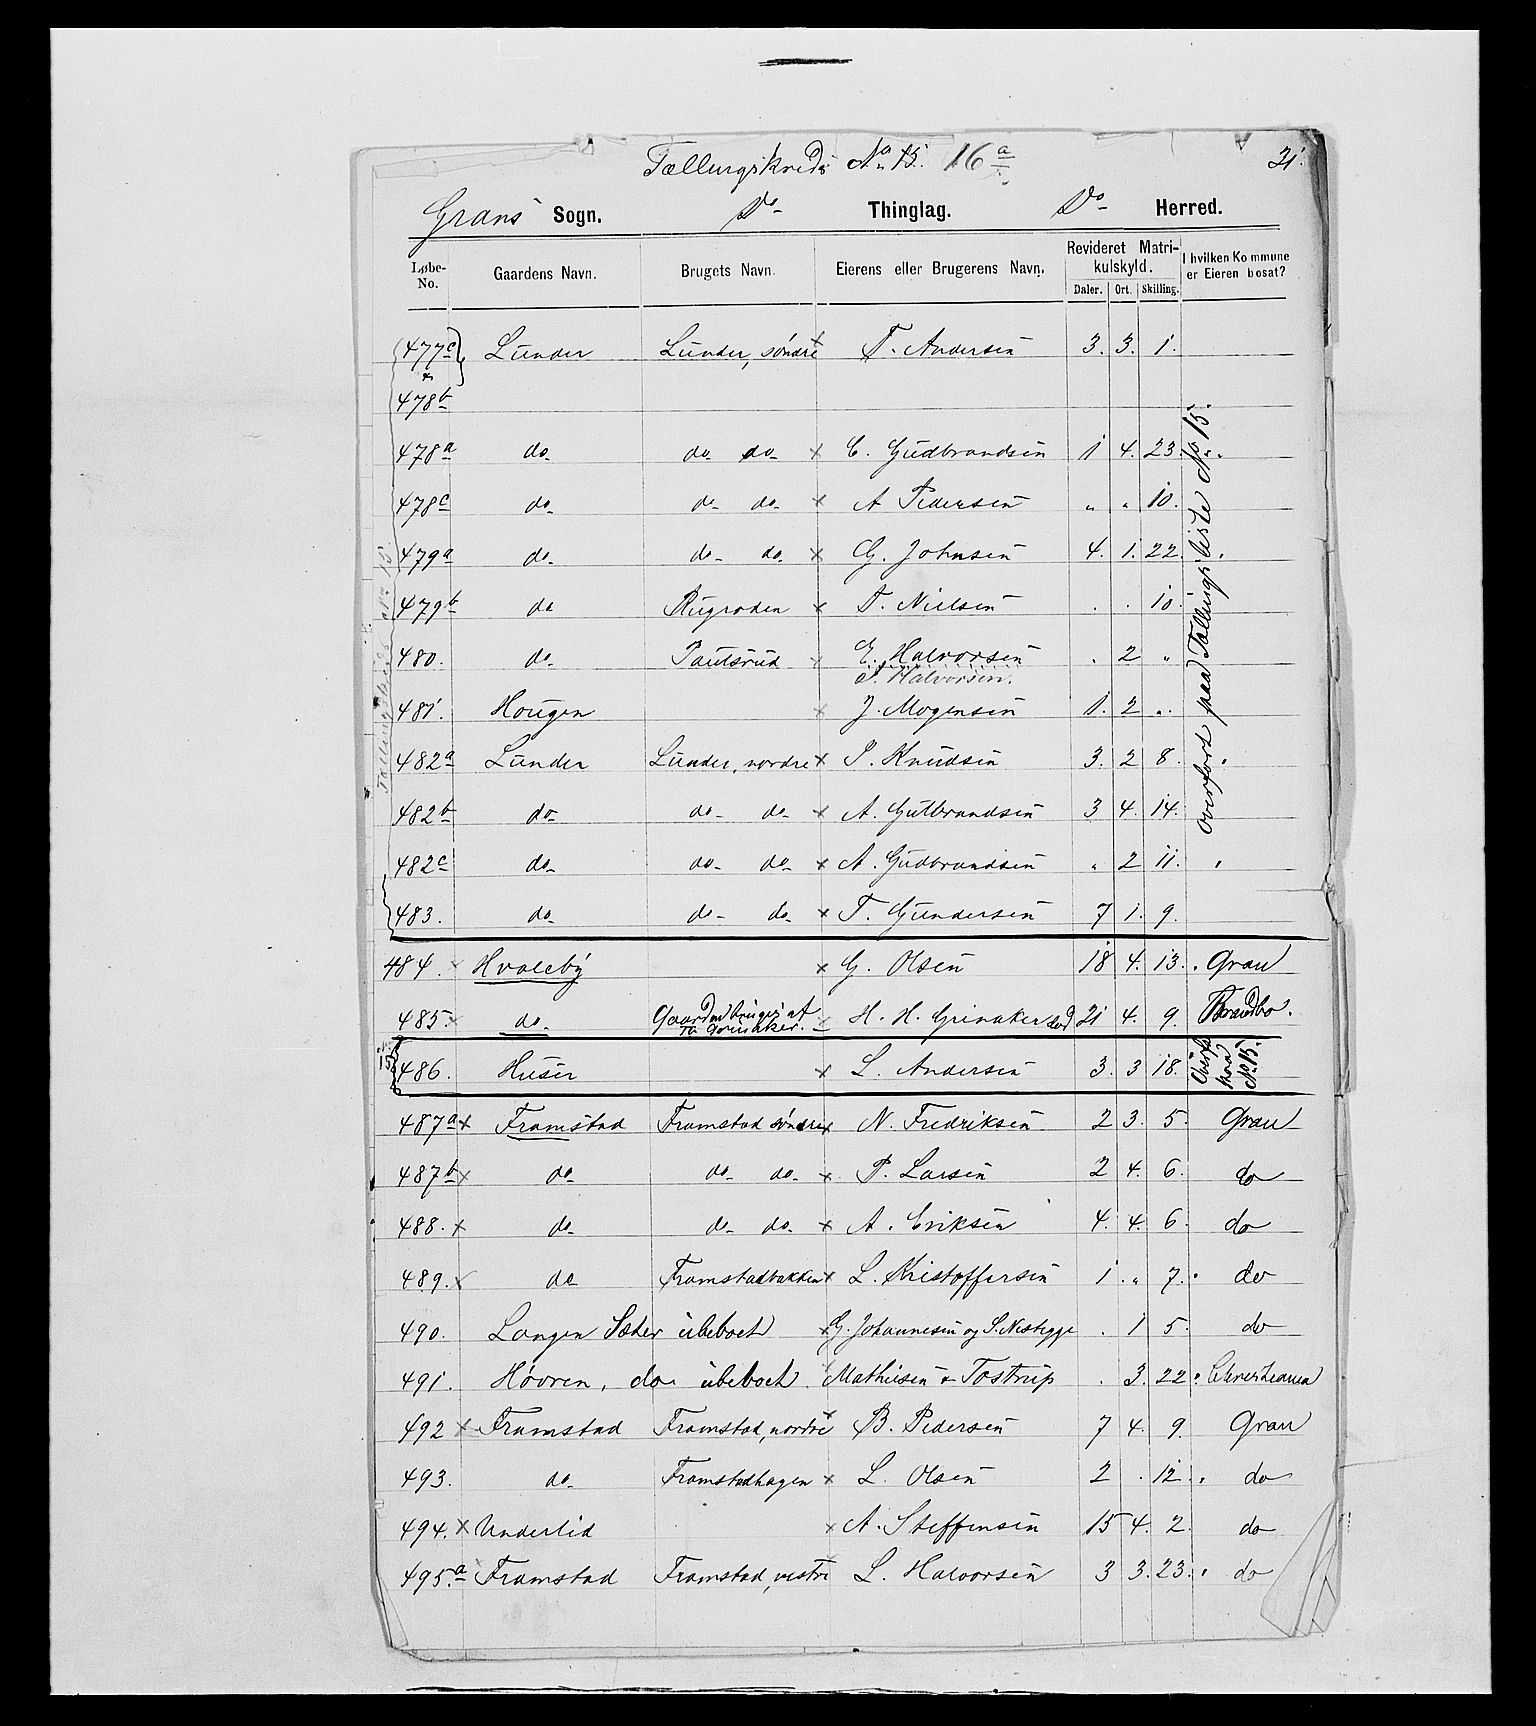 Tællingskreds No 15. 16 a 21.
Grans Sogn. Do Thinglag. Do Herred.
Løbe-No. Gaardens Navn. Brugets Navn. Eierens eller Brugerens Navn. Revideret Matrikulskyld. Daler. Ort. Skilling. I hvilken Kommune er Eieren bosat?
477c & Lunder Lunder, søndre x T. Andersen 3. 3. 1.
478b
478a do do do x C. Gudbrandsen 1 4. 23.
478c do do do x A Pedersen " " 10.
479a do do do x G. Johnsen 4. 1. 22.
479b do Rugroden x T. Nielsen . . 10.
480. do Paulsrud x E. Halvorsen . 2 "
P. Halvorsen.
481. Hougen x J. Mogensen 1. 2 "
482a Lunder Lunder, nordre x P. Knudsen 3. 2 8.
482b do do do x A. Gulbrandsen 3 4. 14.
482c do do do x A. Gudbrandsen " 2 11.
483. do do do x T. Gundersen 7 1. 9.
overført paa Tællingsliste No 15.
Tællingskreds No 15.
484. x Hvaleby x G. Olsen 18 4. 13. Gran
485. x do Gaarden bruges af Th. Grinaker. x H. H. Grinaker 21 4. 9. Brandbo.
No 15 486. Huser x L. Andersen 3. 3 18. Overf. paa No 15.
487a x Framstad Framstad søndre x N. Fredriksen 2 3. 5. Gran
487b x do do do x P. Larsen 2 4. 6. do
488. x do do do x A. Eriksen 4. 4. 6. do
489. x do Framstadbakken x L. Kristoffersen 1. " 7. do
490. Langen Sæter ubeboet x G. Johannesen og S. Nestegge . 1 5. do
491. Høvren, do ubeboet. x Mathiesen & Tostrup . 3. 22. Christiania
492 x Framstad Framstad, nordre x B. Pedersen 7 4. 9. Gran
493. do Framstadhagen x L. Olsen 2 . 12. do
494. x Underlid x A. Steffensen 15 4. 2. do
495.a x Framstad Framstad, vestre x L. Halvorsen 3 3. 23. do